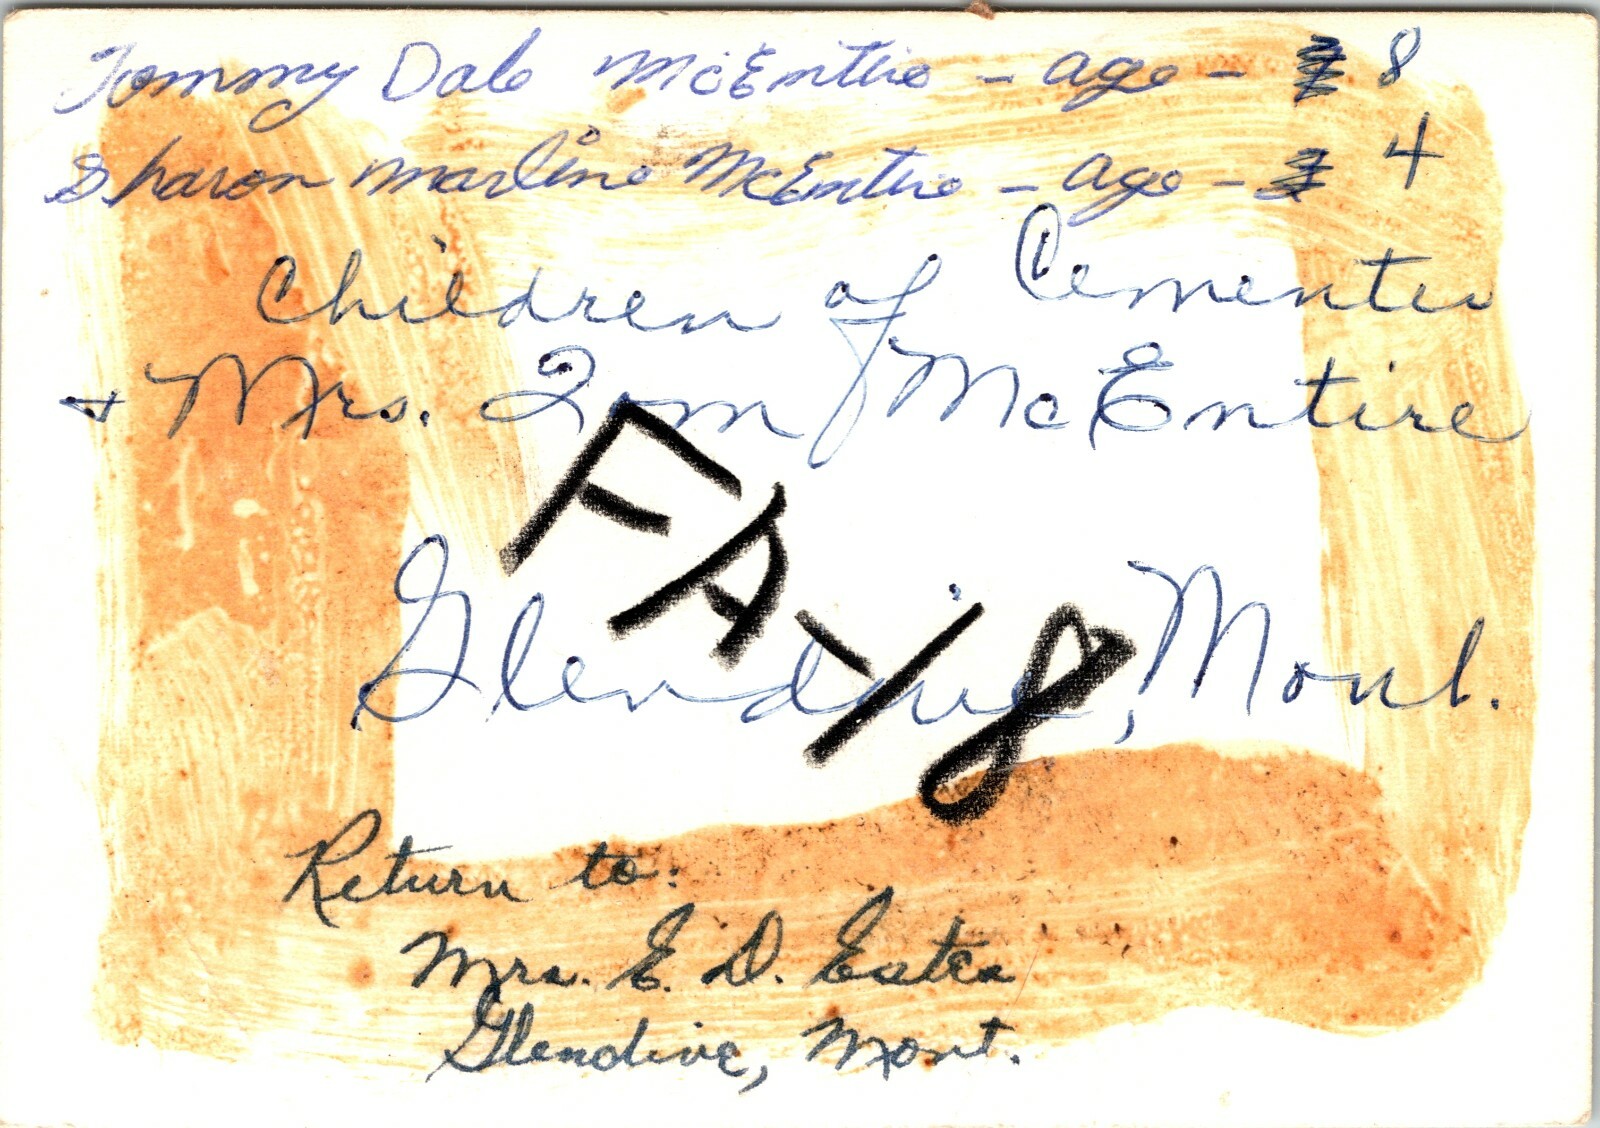 Tommy Dale McEntire - age - 8
Sharon Marline McEntire - age - 4
Children of
+ Mrs. Tom McEntire
FAY8
Glendive, Mont.
Return to:
Mrs. E. D. Estes
Glendive, Mont.